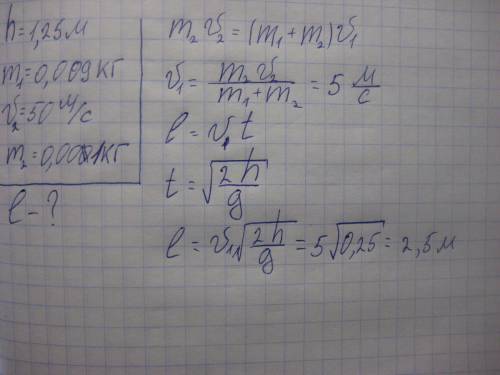 h = 1,25 м
m₁ = 0,009 кг
v₂ = 50 м/с
m₂ = 0,001 кг
l - ?
m₂ v₂ = (m₁ + m₂) v₁
v₁ = m₂ v₂ / m₁ + m₂ = 5 м/с
l = v₁ t
t = √2h/g
l = v₁ √2h/g = 5 √0,25 = 2,5 м